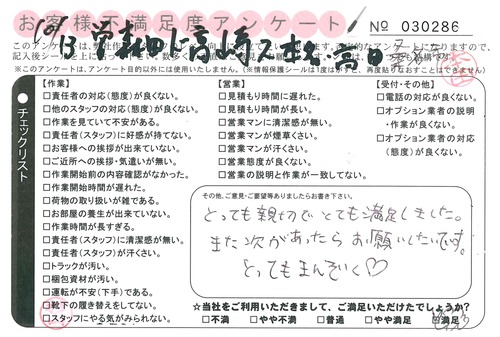 お客様不満足度アンケート
№ 030286
※このアンケートは、アンケート目的以外には使用いたしません。(※情報保護シールは1度はがすと、再度貼りなおすことはできません)
チェックリスト
【作業】
□責任者の対応(態度)が良くない。
□他のスタッフの対応(態度)が良くない。
□作業を見ていて不安がある。
□責任者(スタッフ)に好感が持てない。
□お客様への挨拶が出来ていない。
□ご近所への挨拶・気遣いが無い。
□作業開始前の内容確認がなかった。
□作業開始時間が遅れた。
□荷物の取り扱いが雑である。
□お部屋の養生が出来ていない。
□作業時間が長すぎる。
□責任者(スタッフ)に清潔感が無い。
□責任者(スタッフ)が汗くさい。
□トラックが汚い。
□梱包資材が汚い。
□運転が不安(下手)である。
□靴下の履き替えをしてない。
□スタッフにやる気がみられない。
【営業】
□見積もり時間に遅れた。
□見積もり時間が長い。
□営業マンに清潔感が無い。
□営業マンが煙草くさい。
□営業マンが汗くさい。
□営業態度が良くない。
□営業の説明と作業が一致してない。
【受付・その他】
□電話の対応が良くない。
□オプション業者の説明・作業が良くない。
□オプション業者の対応(態度)が良くない。
その他、ご意見・ご要望等ありましたらお書き下さい。
とっても親切でとても満足しました。
また次があったらお願いしたいです。
とってもまんぞく♡
☆当社をご利用いただきまして、ご満足いただけたでしょうか？
□不満 □やや不満 □普通 □やや満足 □満足